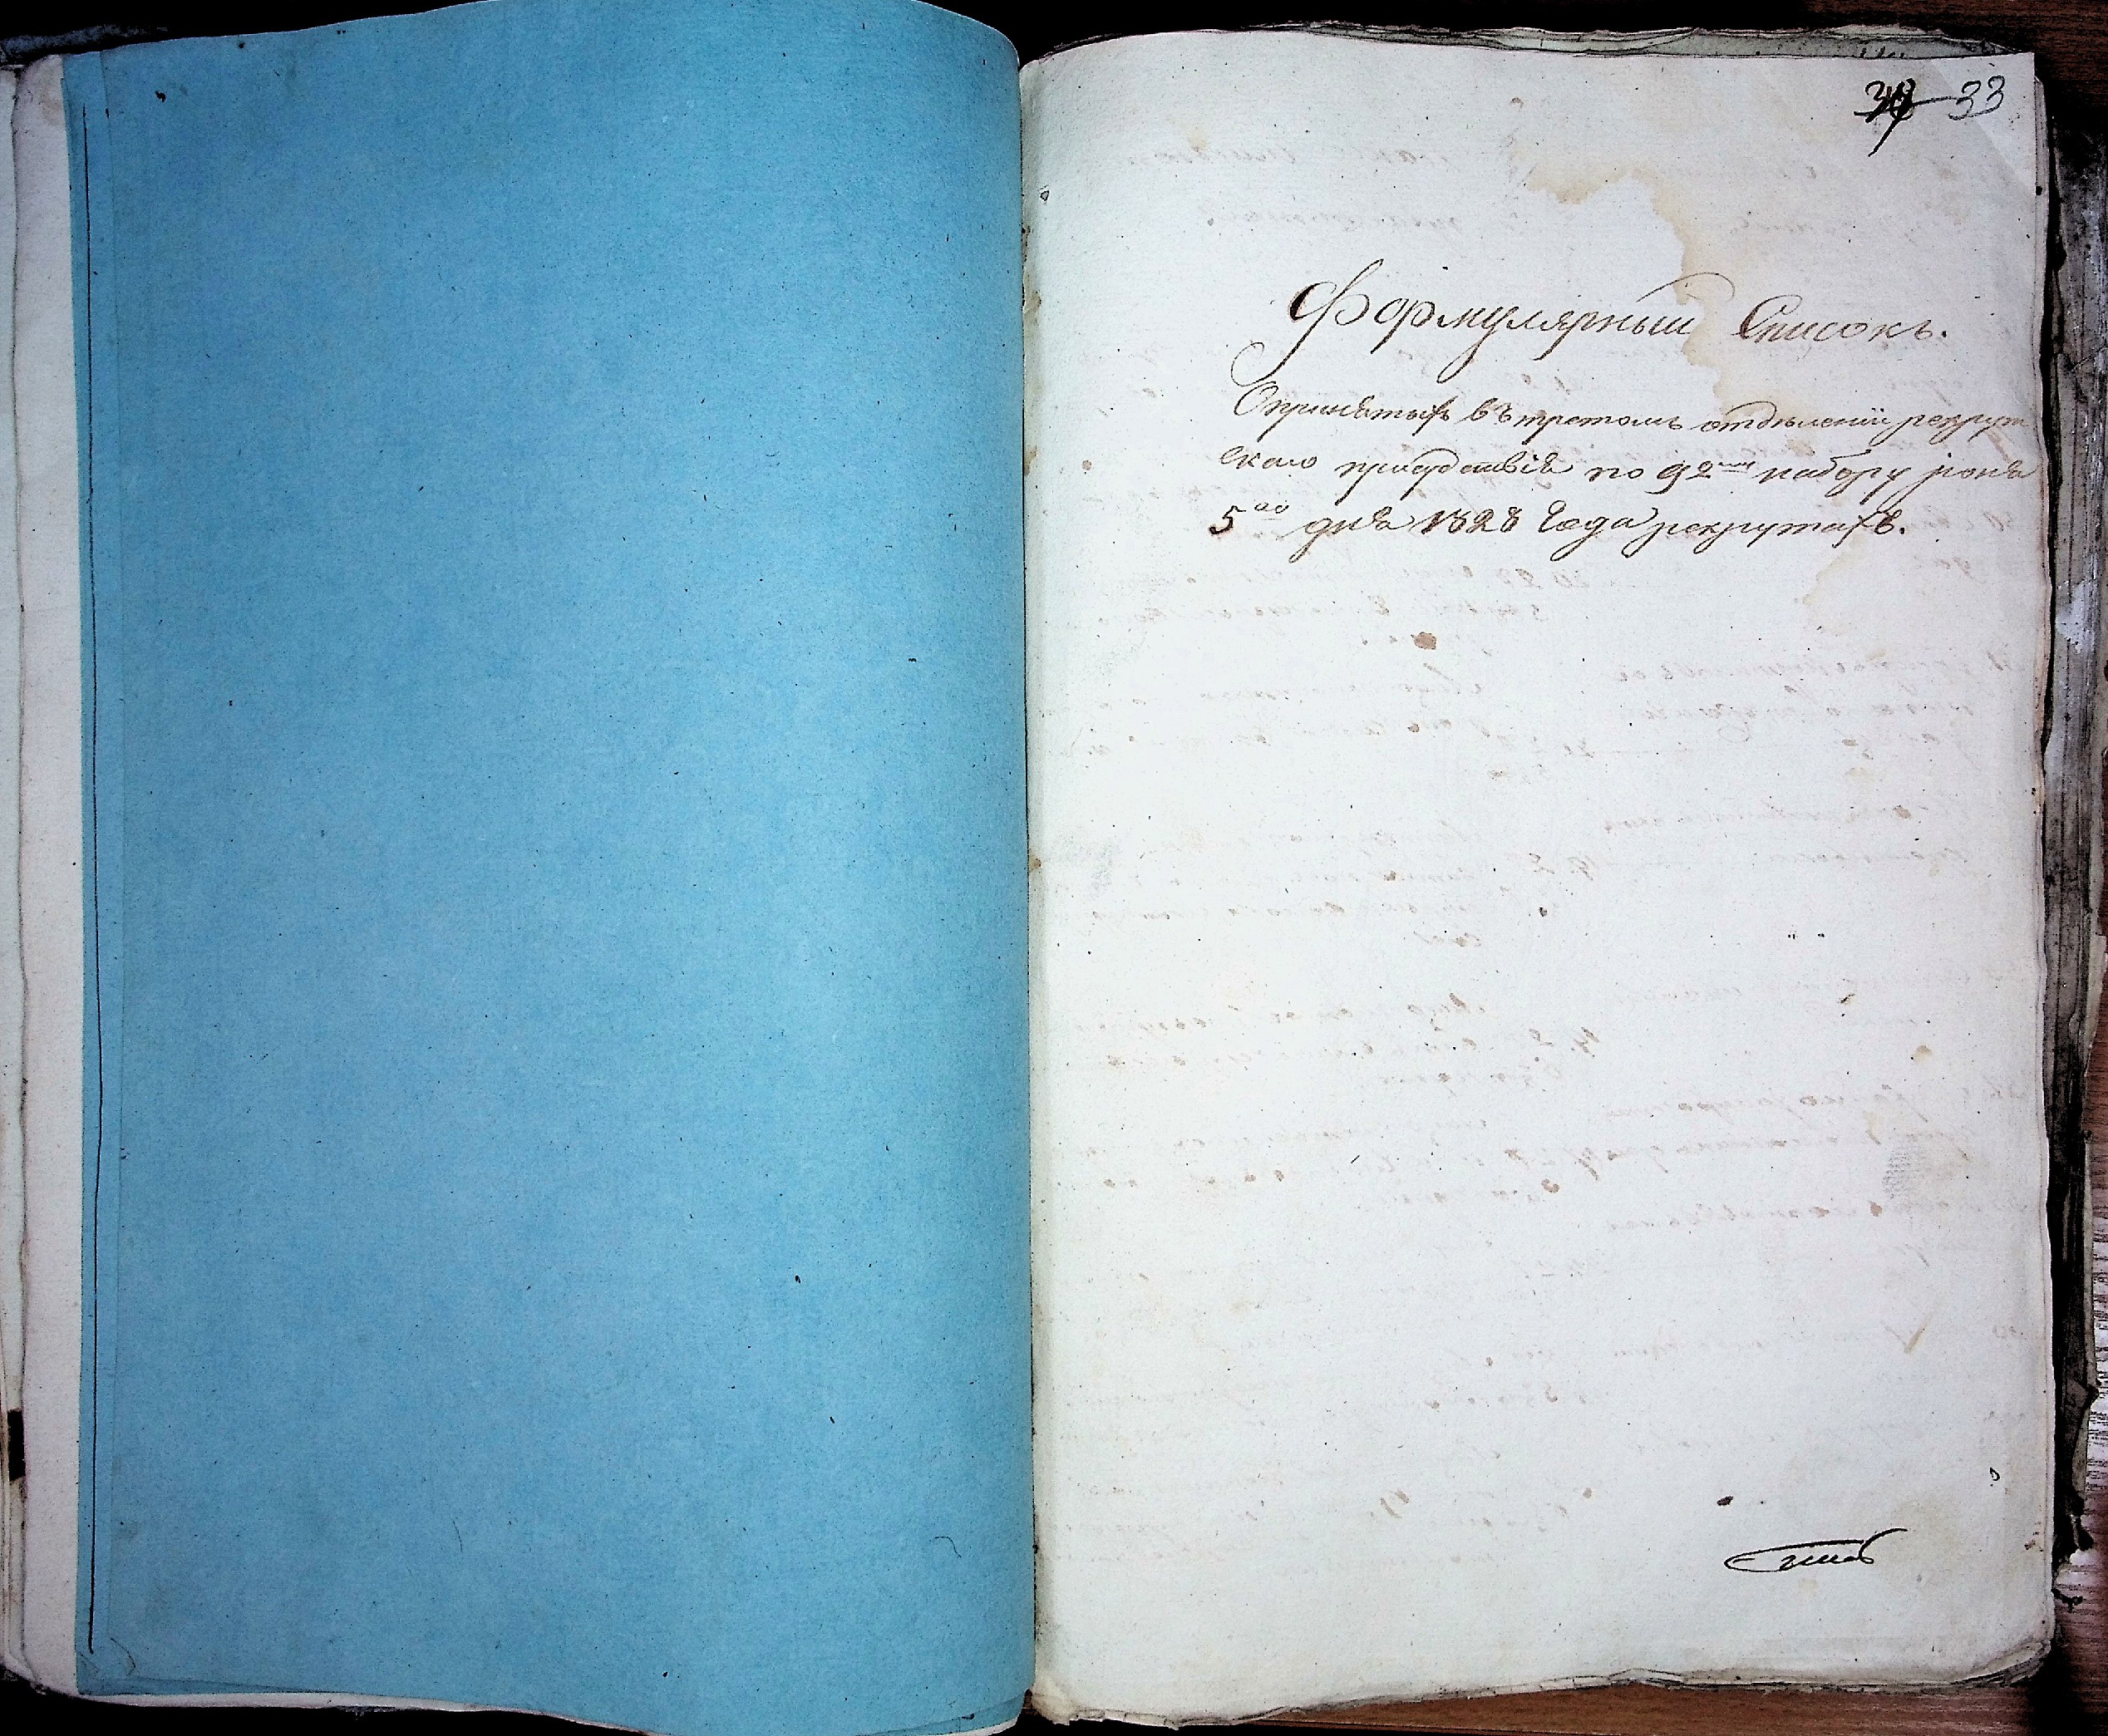 33
Формулярный Списокъ.
Опринятыхъ въ третомъ отделении рекрут
скаго присудствія по 92му набору июня
5го дня 1828 года рекрутахъ.